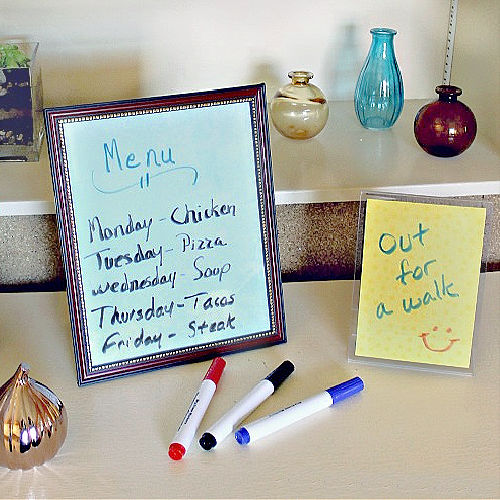 Menu
Monday - Chicken
Tuesday - Pizza
Wednesday - Soup
Thursday - Tacos
Friday - Steak
Out
for
a walk